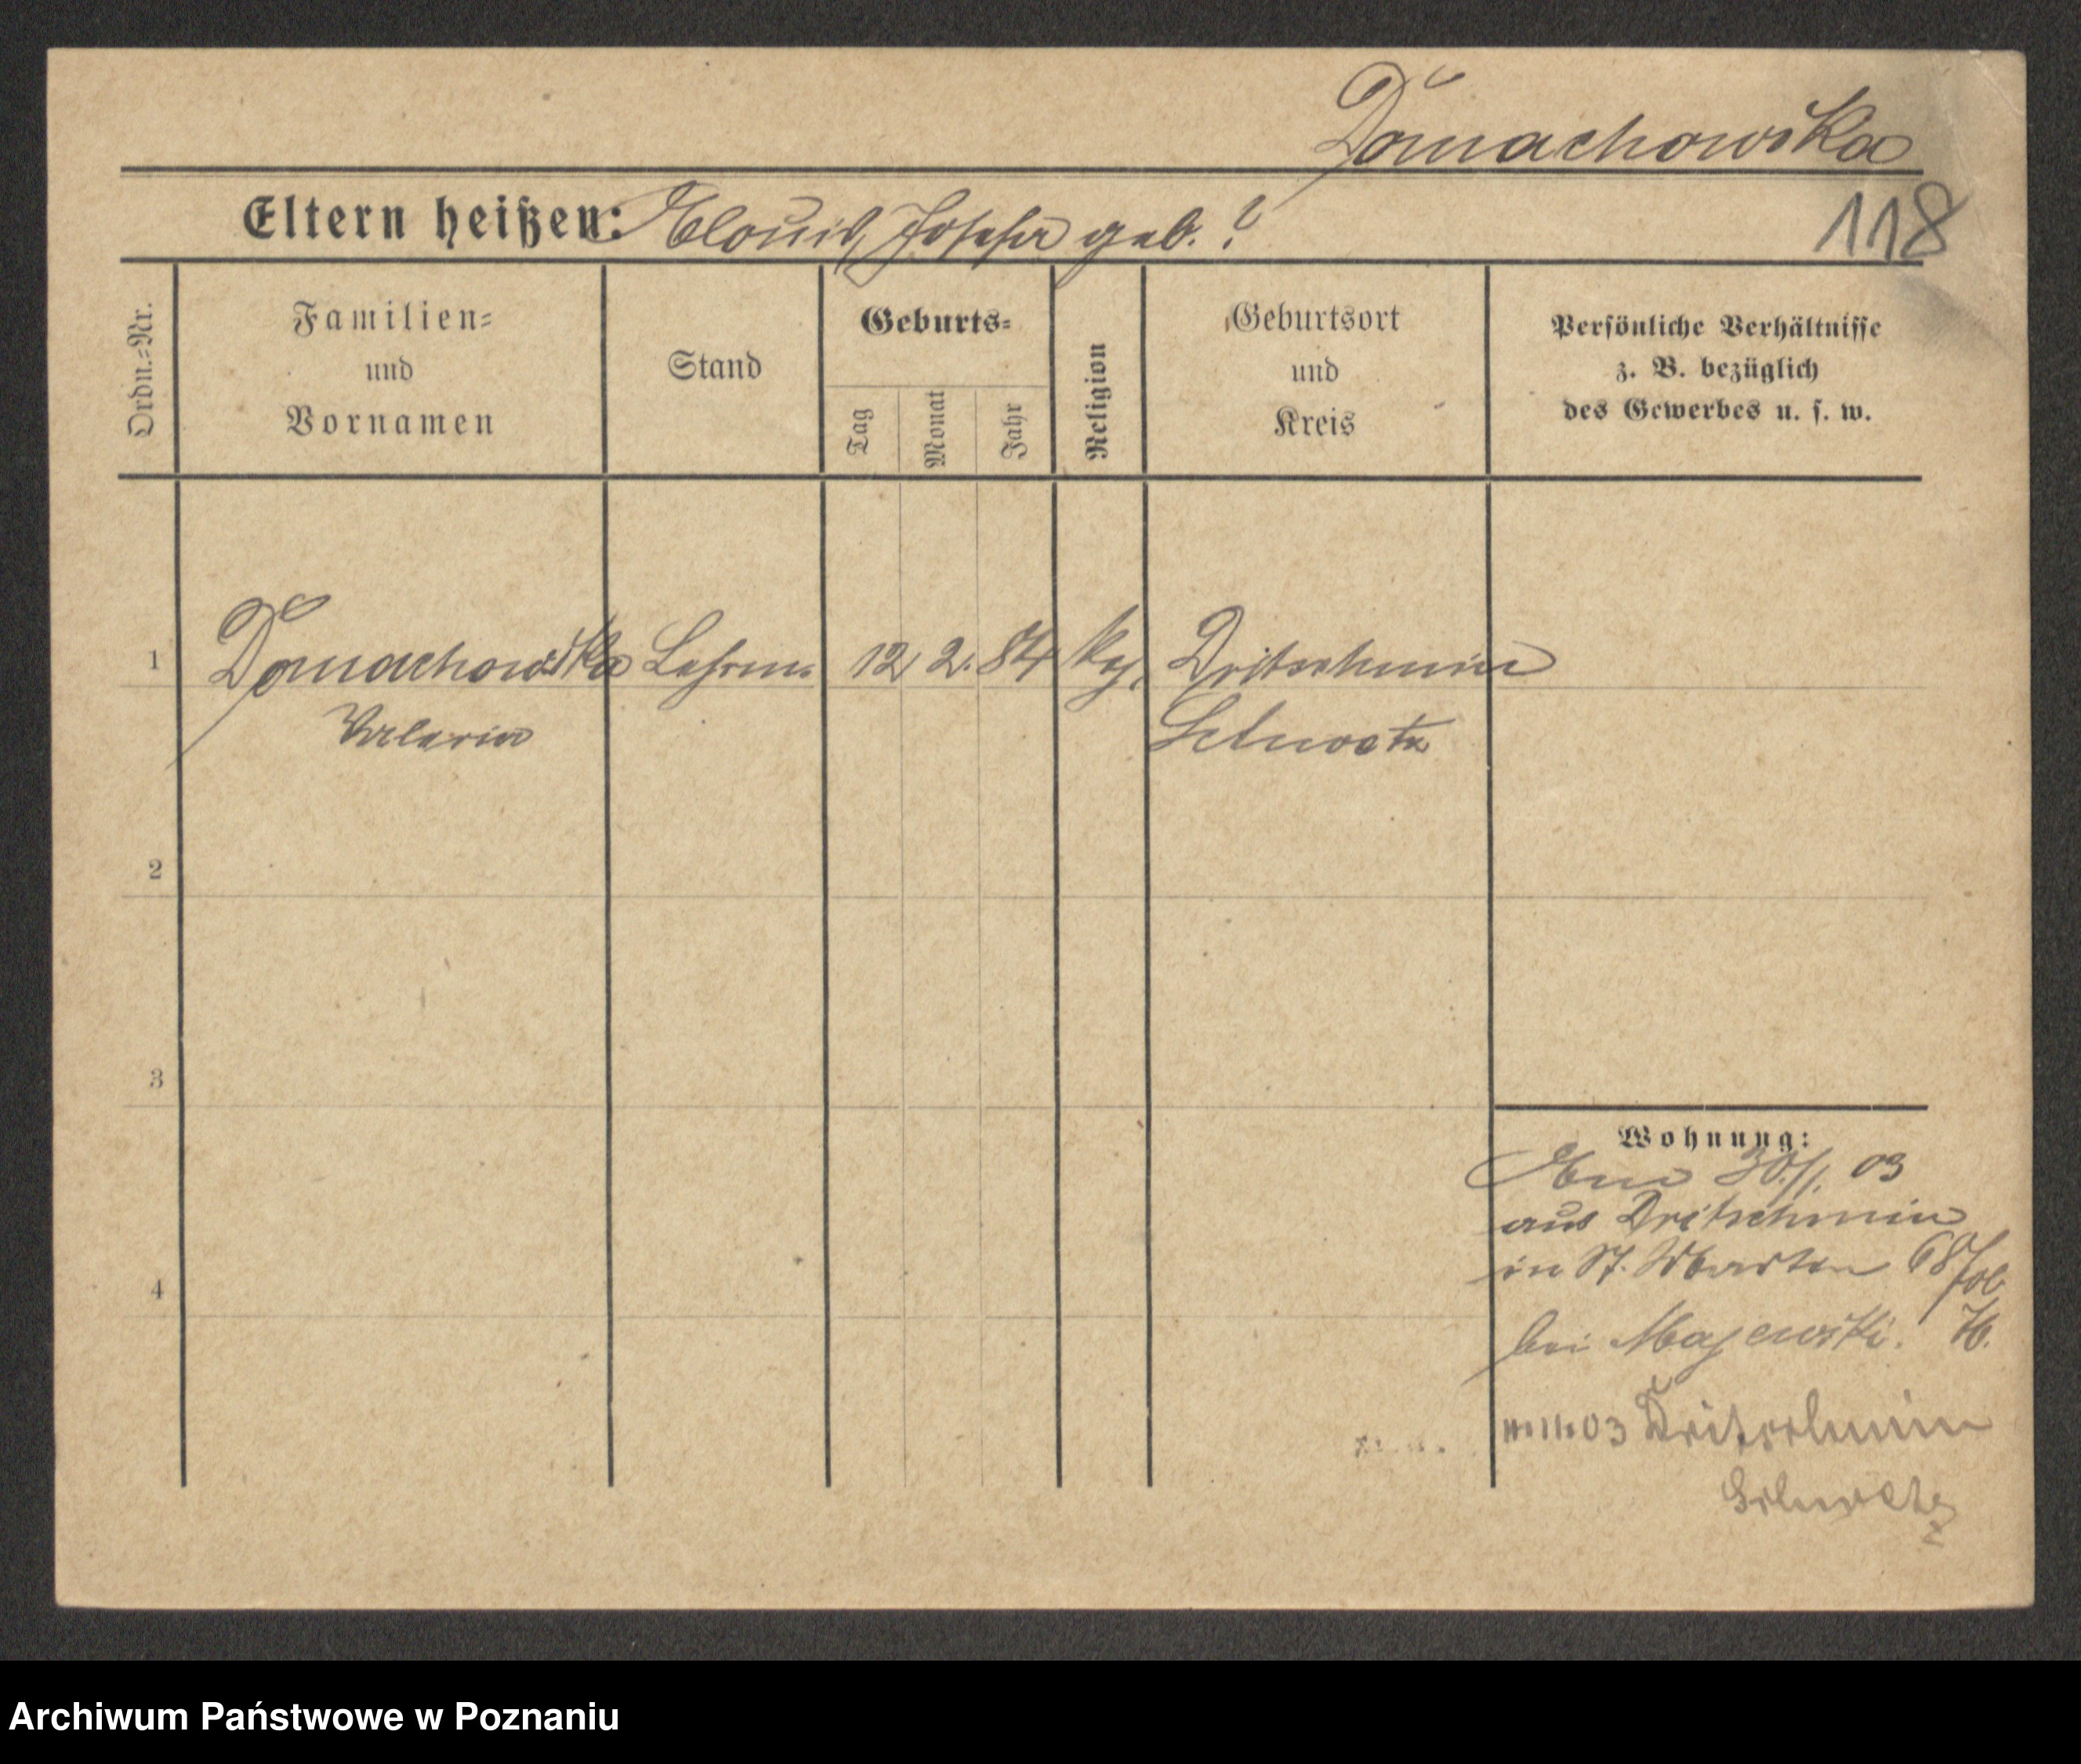 Domachowska
118
Eltern heißen: Alouis, Josefa geb. ?
Ordn.=Nr.
Familien=
und
Vornamen
Stand
Geburts=
Tag
Monat
Jahr
Religion
Geburtsort
und
Kreis
Persönliche Verhältnisse
z. B. bezüglich
des Gewerbes u. s. w.
1 Domachowska Lehrin. 12. 2. 84 Dritschmin
Valeria Schwetz
2
3
4
Wohnung:
03
aus Dritschmin
in St. Martin 68
bei Majewski.
03 Dritschmin
Schwetz
Archiwum Państwowe w Poznaniu